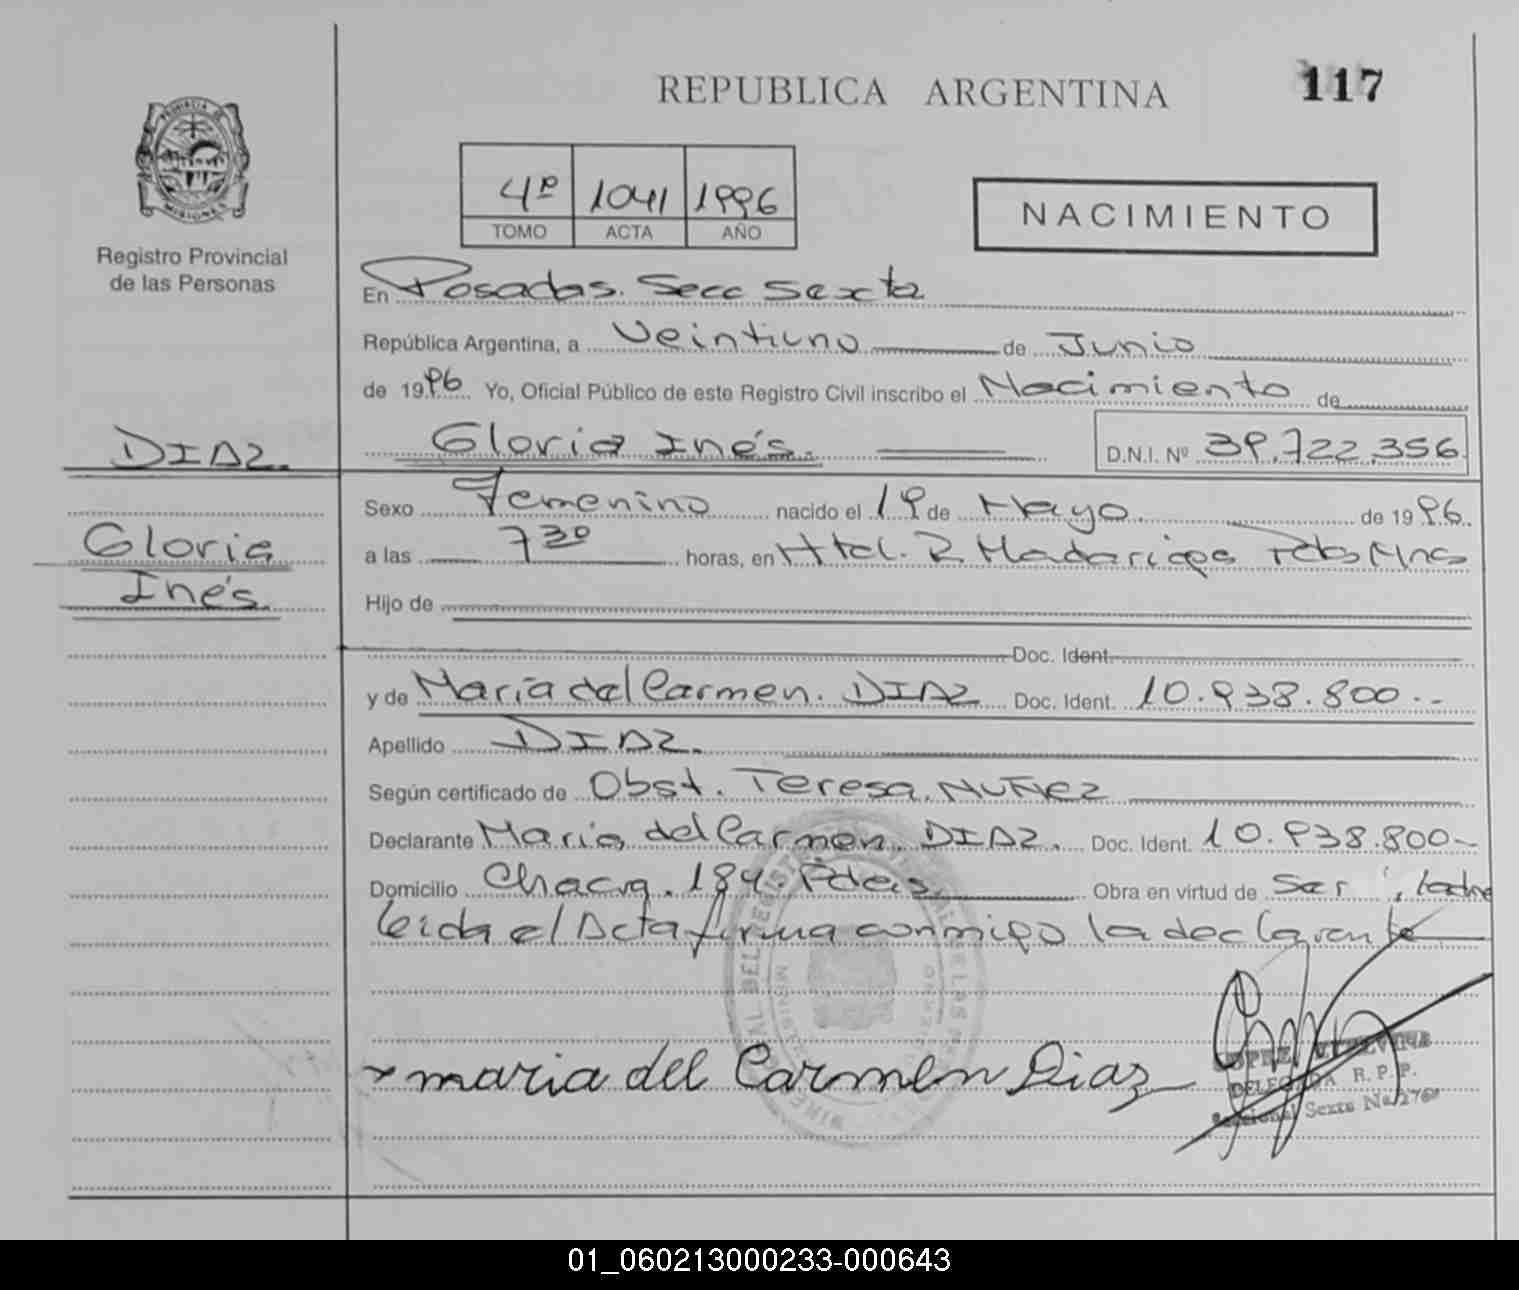 REPUBLICA ARGENTINA
117
PROVINCIA DE
MISIONES
Registro Provincial
de las Personas
4º 1041 1996
TOMO ACTA AÑO
NACIMIENTO
En Posadas. Secc Sexta
República Argentina, a Veintiuno de Junio
de 1996 Yo, Oficial Público de este Registro Civil inscribo el Nacimiento de
DIAZ. Gloria Inés. D.N.I. Nº 39.722.356
Sexo Femenino nacido el 19 de Mayo de 1996.
Gloria
Inés
a las 7 30 horas, en Htal. R Madariaga Pdas Mnes
Hijo de
Doc. Ident.
y de María del Carmen. DIAZ Doc. Ident. 10.938.800.-
Apellido DIAZ.
Según certificado de Obst. Teresa. NUÑez
Declarante María del Carmen DIAZ. Doc. Ident. 10.938.800-
Domicilio Chacra. 184. Pdas Obra en virtud de Ser
leida el Acta firma conmigo la declarante
maria del Carmen Diaz
DELEGADA R. P. P.
Seccional Sexta Nº 276
01_060213000233-000643